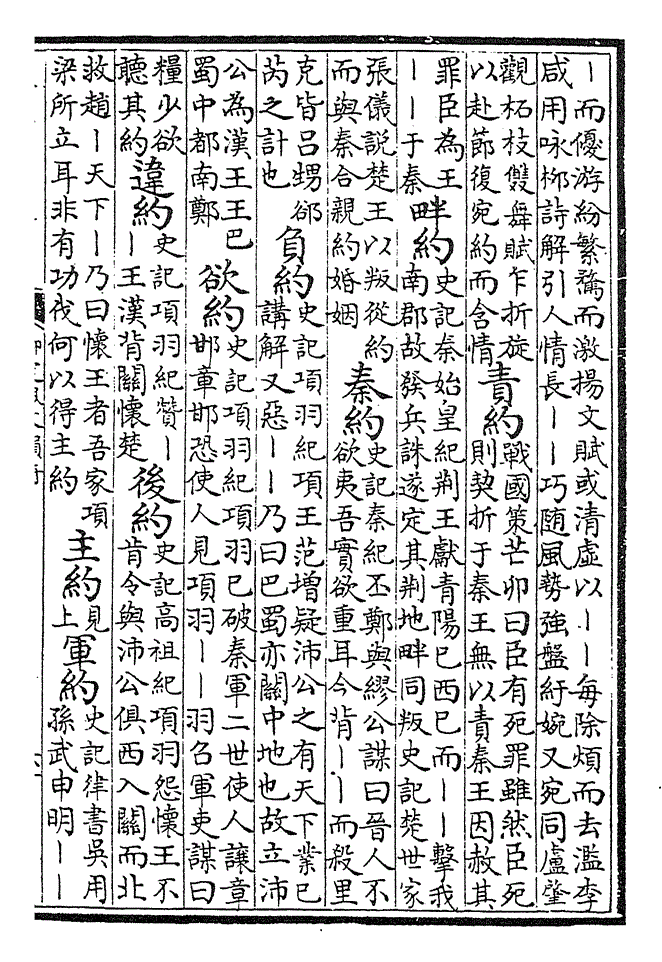 丨而優游紛繁騖而激揚文賦或清虛以丨丨每除煩而去濫李
咸用咏栁詩解引人情長丨丨巧随風勢強盤紆婉又宛同盧肇
觀柘枝雙舞賦乍折旋
以赴節復宛約而含情
責約
戰國策芒卯曰臣有死罪雖然臣死
則契折于秦王無以責秦王因赦其
罪臣為王
丨丨于秦
畔約
史記秦始皇紀荆王獻青陽已西已而丨丨擊我
南郡故發兵誅遂定其荆地畔同叛史記楚世家
張儀說楚王以叛從約
而與秦合親約婚姻
秦約
史記秦紀丕鄭與繆公謀曰晉人不
欲夷吾實欲重耳今背丨丨而殺里
克皆呂甥郤
芮之計也
負約
史記項羽紀項王范增疑沛公之有天下業已
講解又惡丨丨乃曰巴蜀亦關中地也故立沛
公為漢王王巴
蜀中都南鄭
欲約
史記項羽紀項羽已破秦軍二世使人讓章
邯章邯恐使人見項羽丨丨羽召軍吏謀曰
糧少欲
聽其約
違約
史記項羽紀贊丨
丨王漢背關懷楚
後約
史記高祖紀項羽怨懷王不
肯令與沛公俱西入關而北
救趙丨天下丨乃曰懷王者吾家項
梁所立耳非有功伐何以得主約
主約
見
上
軍約
史記律書吳用
孫武申明丨丨